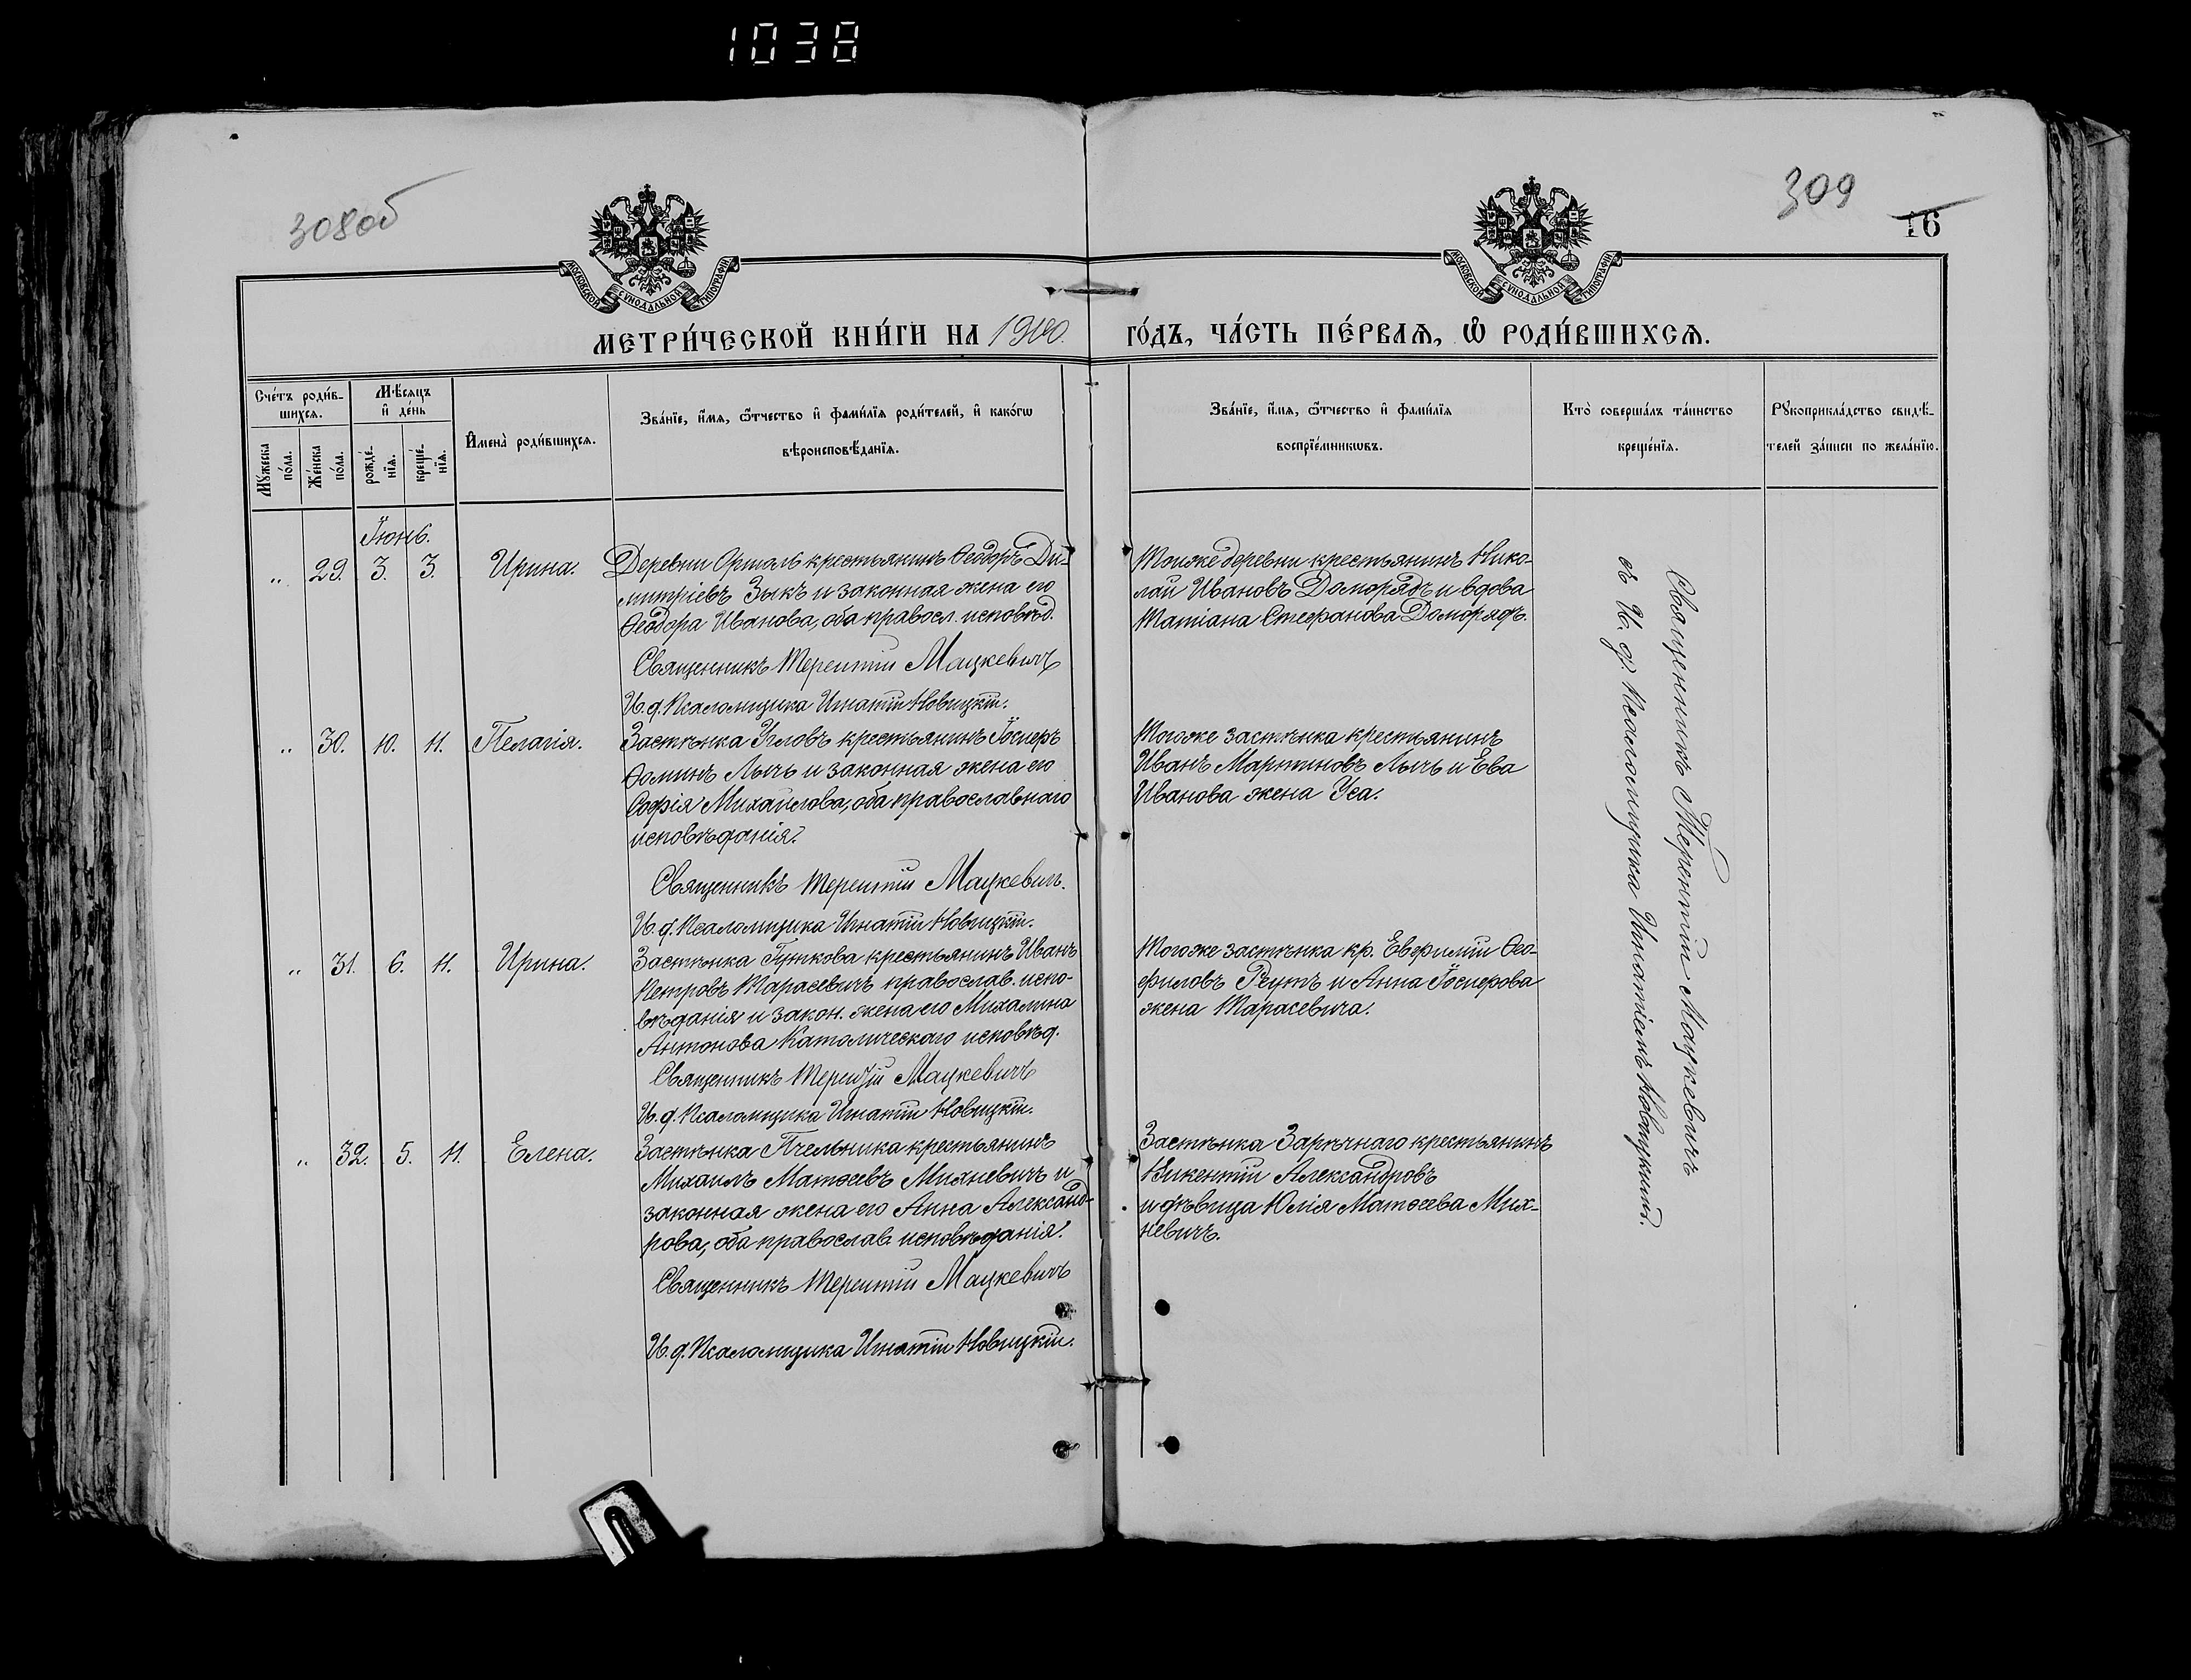 1038
308об
309
16
МОСКОВСКОЙ СѴНОДАЛЬНОЙ ТИПОГРАФІИ
МОСКОВСКОЙ СѴНОДАЛЬНОЙ ТИПОГРАФІИ
МЕТРИ́ЧЕСКОЙ КНИ́ГИ НА 1900. ГО́ДЪ, ЧА́СТЬ ПЕ́РВАѦ, Ѽ РОДИ́ВШИХСѦ.
Сче́тъ роди́в-
шихсѧ.
Мѣ́сѧцъ
и҆ де́нь
Мꙋ́жеска
по́ла.
Же́нска
по́ла.
рожде́-
нїѧ.
креще́-
нїѧ.
И҆мена̀ роди́вшихсѧ.
Зва́нїе, и҆́мѧ, ѻ҆́тчество и҆ фами́лїѧ роди́телей, и҆ како́гѡ
вѣроисповѣ́данїѧ.
Зва́нїе, и҆́мѧ, ѻ҆́тчество и҆ фами́лїѧ
воспрїе́мникѡвъ.
Кто̀ соверша́лъ та́инство
креще́нїѧ.
Рꙋкоприкла́дство свидѣ́-
телей за́писи по жела́нїю.
Іюнь.
„ 29. 3. 3. Ирина.
Деревни Орталь крестьянинъ Ѳеодоръ Ди-
митріевъ Зыкъ и законная жена его
Ѳеодора Иванова, оба правосл. исповѣд.
Священникъ Терентій Мацкевичъ
И. д. Псаломщика Игнатій Новицкій.
Тойже деревни крестьянинъ Нико-
лай Ивановъ Доморядъ и вдова
Татіана Стефанова Доморядъ.
„ 30. 10. 11. Пелагія.
Застѣнка Угловъ крестьянинъ Іосифъ
Ѳоминъ Лычъ и законная жена его
Софія Михайлова, оба православнаго
исповѣданія.
Священникъ Терентій Мацкевичъ.
И. д. Псаломщика Игнатій Новицкій.
Тогоже застѣнка крестьянинъ
Иванъ Мартиновъ Лычъ и Ева
Иванова жена Уса.
„ 31. 6. 11. Ирина.
Застѣнка Гуткова крестьянинъ Иванъ
Петровъ Тарасевичъ православ. испо-
вѣданія и закон. жена его Михалина
Антонова Католическаго исповѣд.
Священникъ Терентій Мацкевичъ
И. д. Псаломщика Игнатій Новицкій.
Тогоже застѣнка кр. Евфимій Ѳео-
филовъ Реутъ и Анна Іосифова
жена Тарасевича.
„ 32. 5. 11. Елена.
Застѣнка Пчельника крестьянинъ
Михаилъ Матѳеевъ Михневичъ и
законная жена его Анна Александ-
рова, оба православ. исповѣданія.
Священникъ Терентій Мацкевичъ
И. д. Псаломщика Игнатій Новицкій.
Застѣнка Зарѣчнаго крестьянинъ
Викентій Александровъ
и дѣвица Юлія Матѳеева Мих-
невичъ.
Священникъ Терентій Мацкевичъ
съ И. д. Псаломщика Игнатіемъ Новицкимъ.